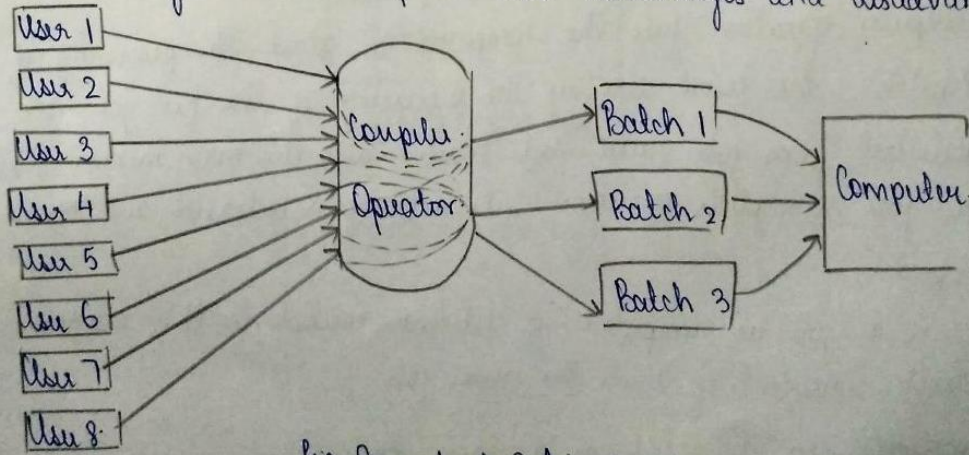 and
User 1
User 2
User 3
User 4
User 5
User 6
User 7
User 8.
Compiler
Operator
Batch 1
Batch 2
Batch 3
Computer